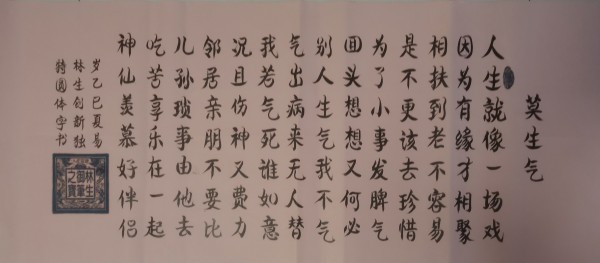 莫生气
人生就像一场戏
因为有缘才相聚
相扶到老不容易
是不更该去珍惜
为了小事发脾气
回头想想又何必
别人生气我不气
气出病来无人替
我若气死谁如意
况且伤神又费力
邻居亲朋不要比
儿孙琐事由他去
吃苦享乐在一起
神仙羡慕好伴侣
岁乙巳夏易
林生创新独
特圆体字书